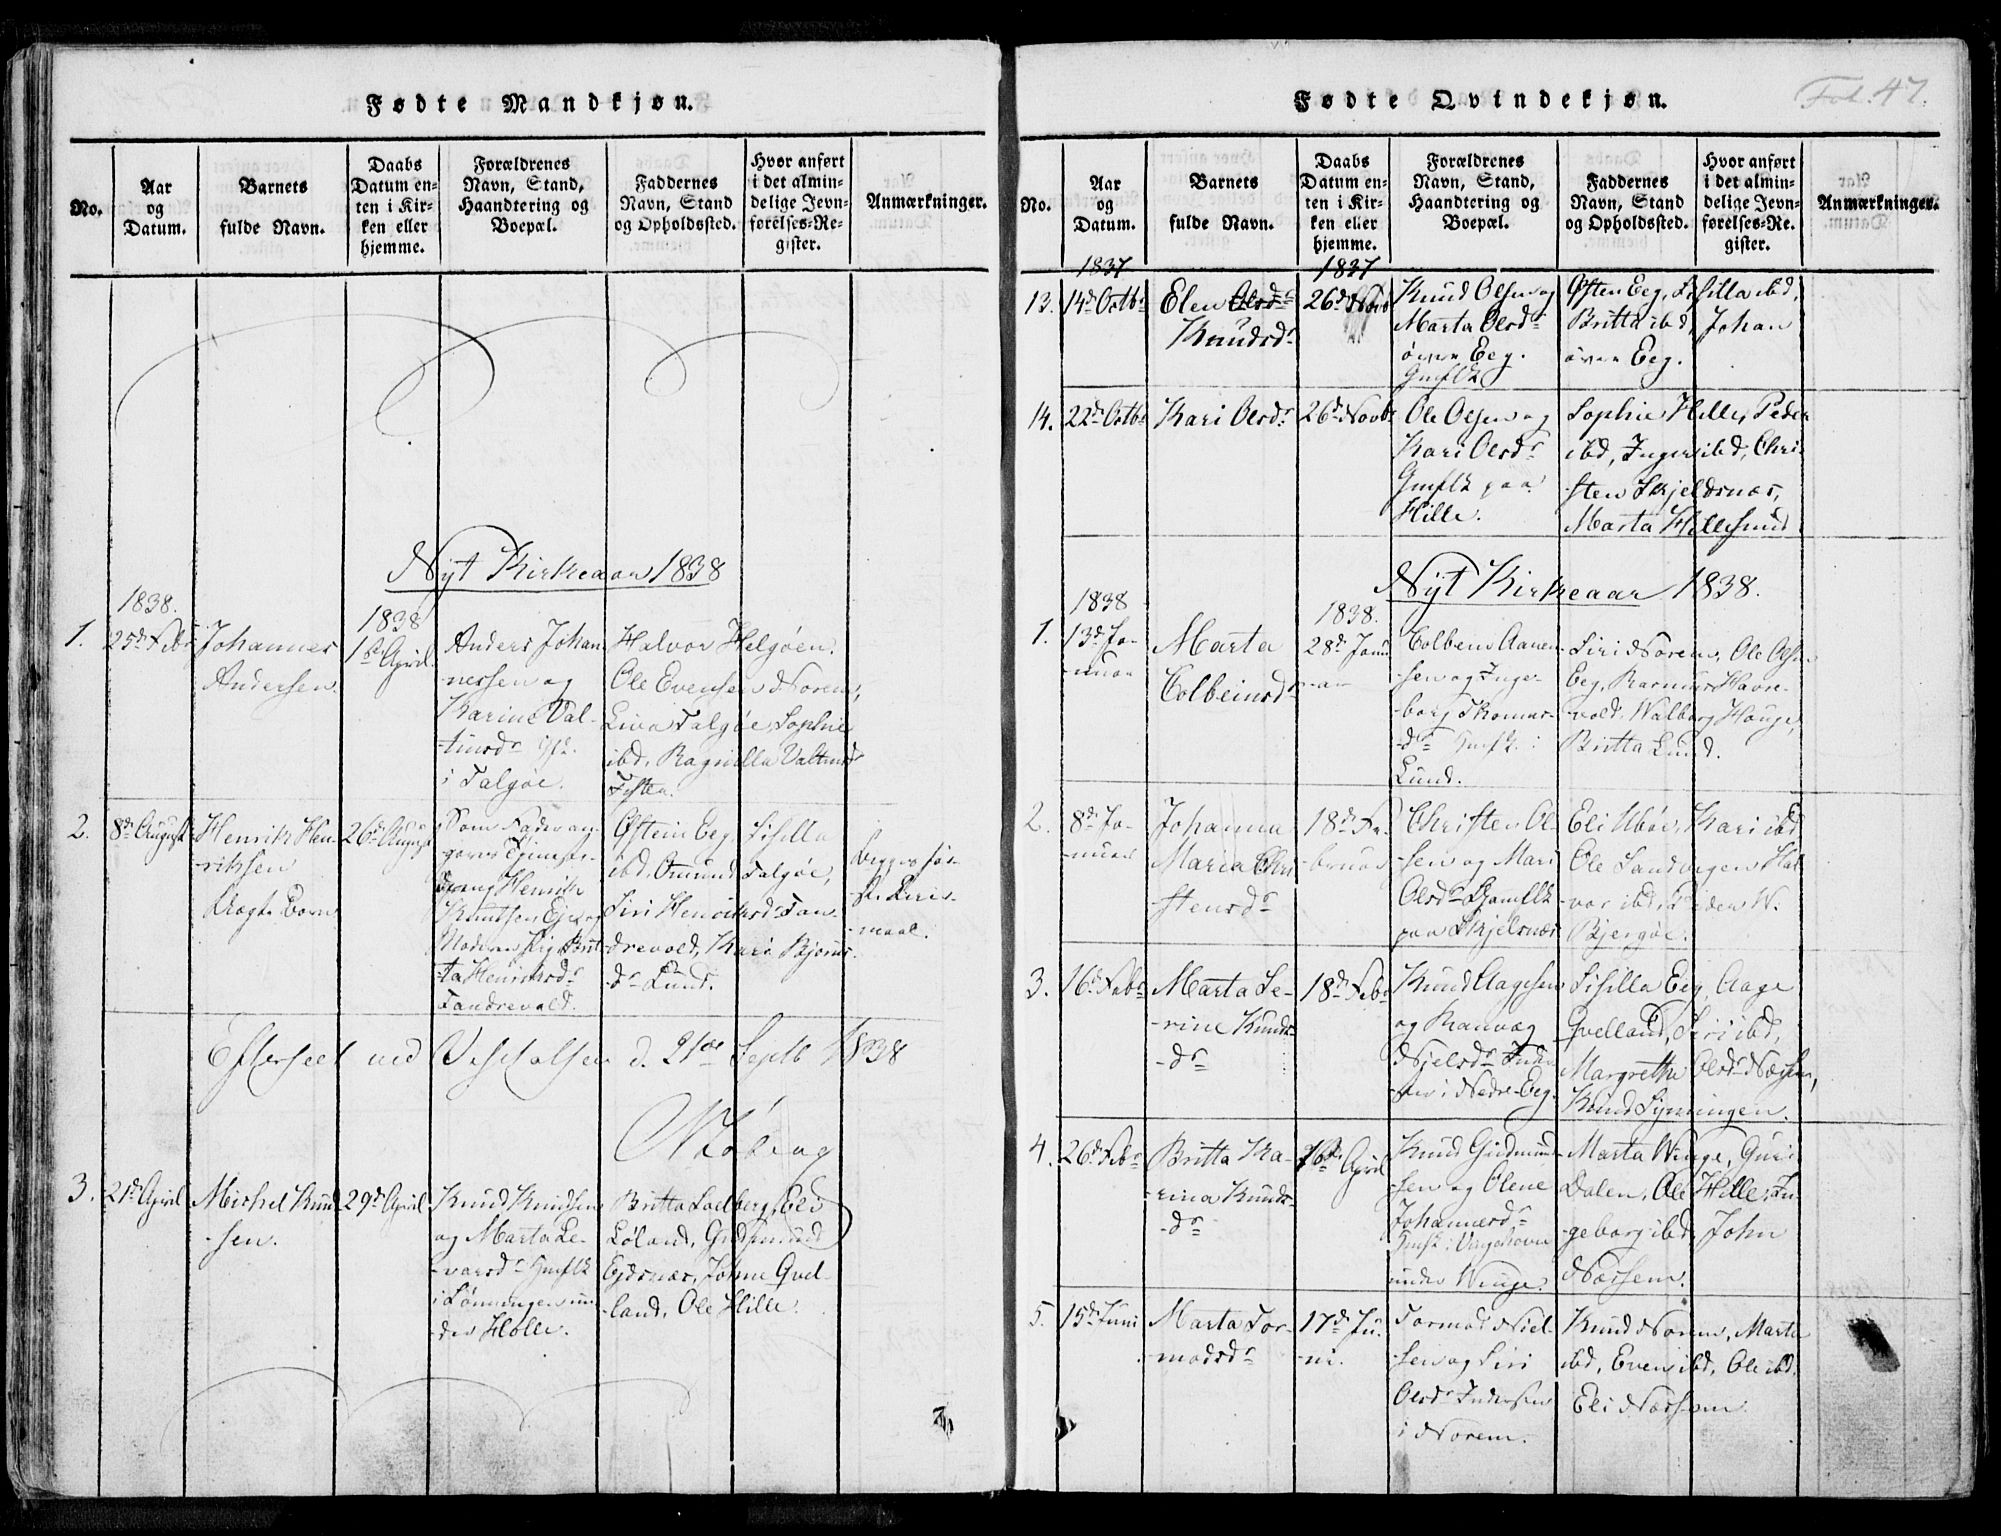 Fødte Mandkjøn.
No.
Aar
og
Datum.
Barnets
fulde Navn.
Daabs
Datum en-
ten i Kir-
ken eller
hjemme.
Forældrenes
Navn, Stand,
Haandtering og
Boepæl.
Faddernes
Navn, Stand
og Opholdssted.
Hvor anført
i det almin-
delige Jevn-
førelses-Re-
gister.
Anmærkninger.
Nyt Kirkeaar 1838
1.
1838.
25de Febr
Johannes
Andersen.
1838
1ste April.
Anders Johan
nessen og
Karine Val-
tinsdr
i Talgøe.
Halvor Helgøen.
Ole Evensen Norem,
Liva Talgøe, Sophie
ibd, Ragnilla Valtinsdr
Tysten.
2.
8de August
Henrik Hen-
riksen
Uægte Barn
26de August
Som Fader an-
gaves
Henrik
Knutsen Eje og
Moderen Pig. Brit-
ta Henriksdr
Tandrevold.
Østein Eeg, Sisilla
ibd, Omund Talgøe,
Siri Henriksdr Tan-
drevold, Kari Bjørns-
dr Lund.
begges før-
ste Leier-
maal.
Efterseet ved Visitatsen d. 21de Septb 1838
3.
21de April
Michel Knud
-sen.
29de April
Knud Knudsen
og Marta Le-
-varsdr Huusfolk
i Lønningen un-
der Holle.
Britta Ladberg, Eli
Løland, Gudmund
Eidsnæs, Johne Qvel-
land, Ole Hille.
Fødte Qvindekjøn.
Fol. 47.
No.
Aar
og
Datum.
Barnets
fulde Navn.
Daabs
Datum en-
ten i Kir-
ken eller
hjemme.
Forældrenes
Navn, Stand,
Haandtering og
Boepæl.
Faddernes
Navn, Stand
og Opholdssted.
Hvor anført
i det almin-
delige Jevn-
førelses-Re-
gister.
Anmærkninger.
13.
1837
14de Octbr
Elen Olsdr
Knudsdr
1837
26de Novb
Knud Olsen og
Marta Olsdr
øvre Eeg.
Østen Eeg, Sisilla ibd,
Britta ibd, Johan
øvre Eeg.
14.
22de Octbr
Kari Olsdr
26de Novbr
Ole Olsen og
Kari Olsdr
paa
Hille.
Sophie Hille, Peder
ibd, Inger ibd, Chri-
sten Skjeldsnæs,
Marta Hillesund
Nyt Kirkeaar 1838.
1.
1838
13de Ja-
nuar
Marta
Colbeinsdr
1838.
28de Janu
-ar
Colben Aanen-
sen og Inge-
borg Thomas-
-dr Huusfk. i
Lund.
Siri Norem, Ole Olsen
Eeg, Rasmus Havre-
vold, Walborg Hauge,
Britta Lund.
2.
8de Ja-
-nuar
Johanna
Maria Chri
stensdr
18de Fe-
bruar
Christen Ol-
sen og Mari
Olsdr
paa Skjelsnæs
Eli Ubøe, Kari ibd
Ole Sandvigen, Hal-
vor ibd, Peder W.
Bjergøe.
3.
16de Febr
Marta Se-
-rine Knuds-
-dr
18de Febr
Knud Aagesen
og Ranvæg
Nielsdr Inder-
ster i Nedre Eeg
Sisilla Eeg, Aage
Qvelland, Siri ibd,
Margrethe Olsdr Næssen,
Knud Fynningen.
4.
26de Febr
Britta Ka-
rina Knuds-
-dr
16de April
Knud Gudmund
sen og Olene
Johannesdr
under Winge.
Marta Winge, Guri
Dalen, Ole Hille, In-
geborg ibd, John
Næssem.
5.
15de Juni
Marta Tor-
modsdr
17de Ju-
-ni.
Tormod Niel-
sen og Siri
Olsdr Inderster
i Norem.
Knud Norem, Marta
ibd, Even ibd, Ole ibd,
Eli Næssem.